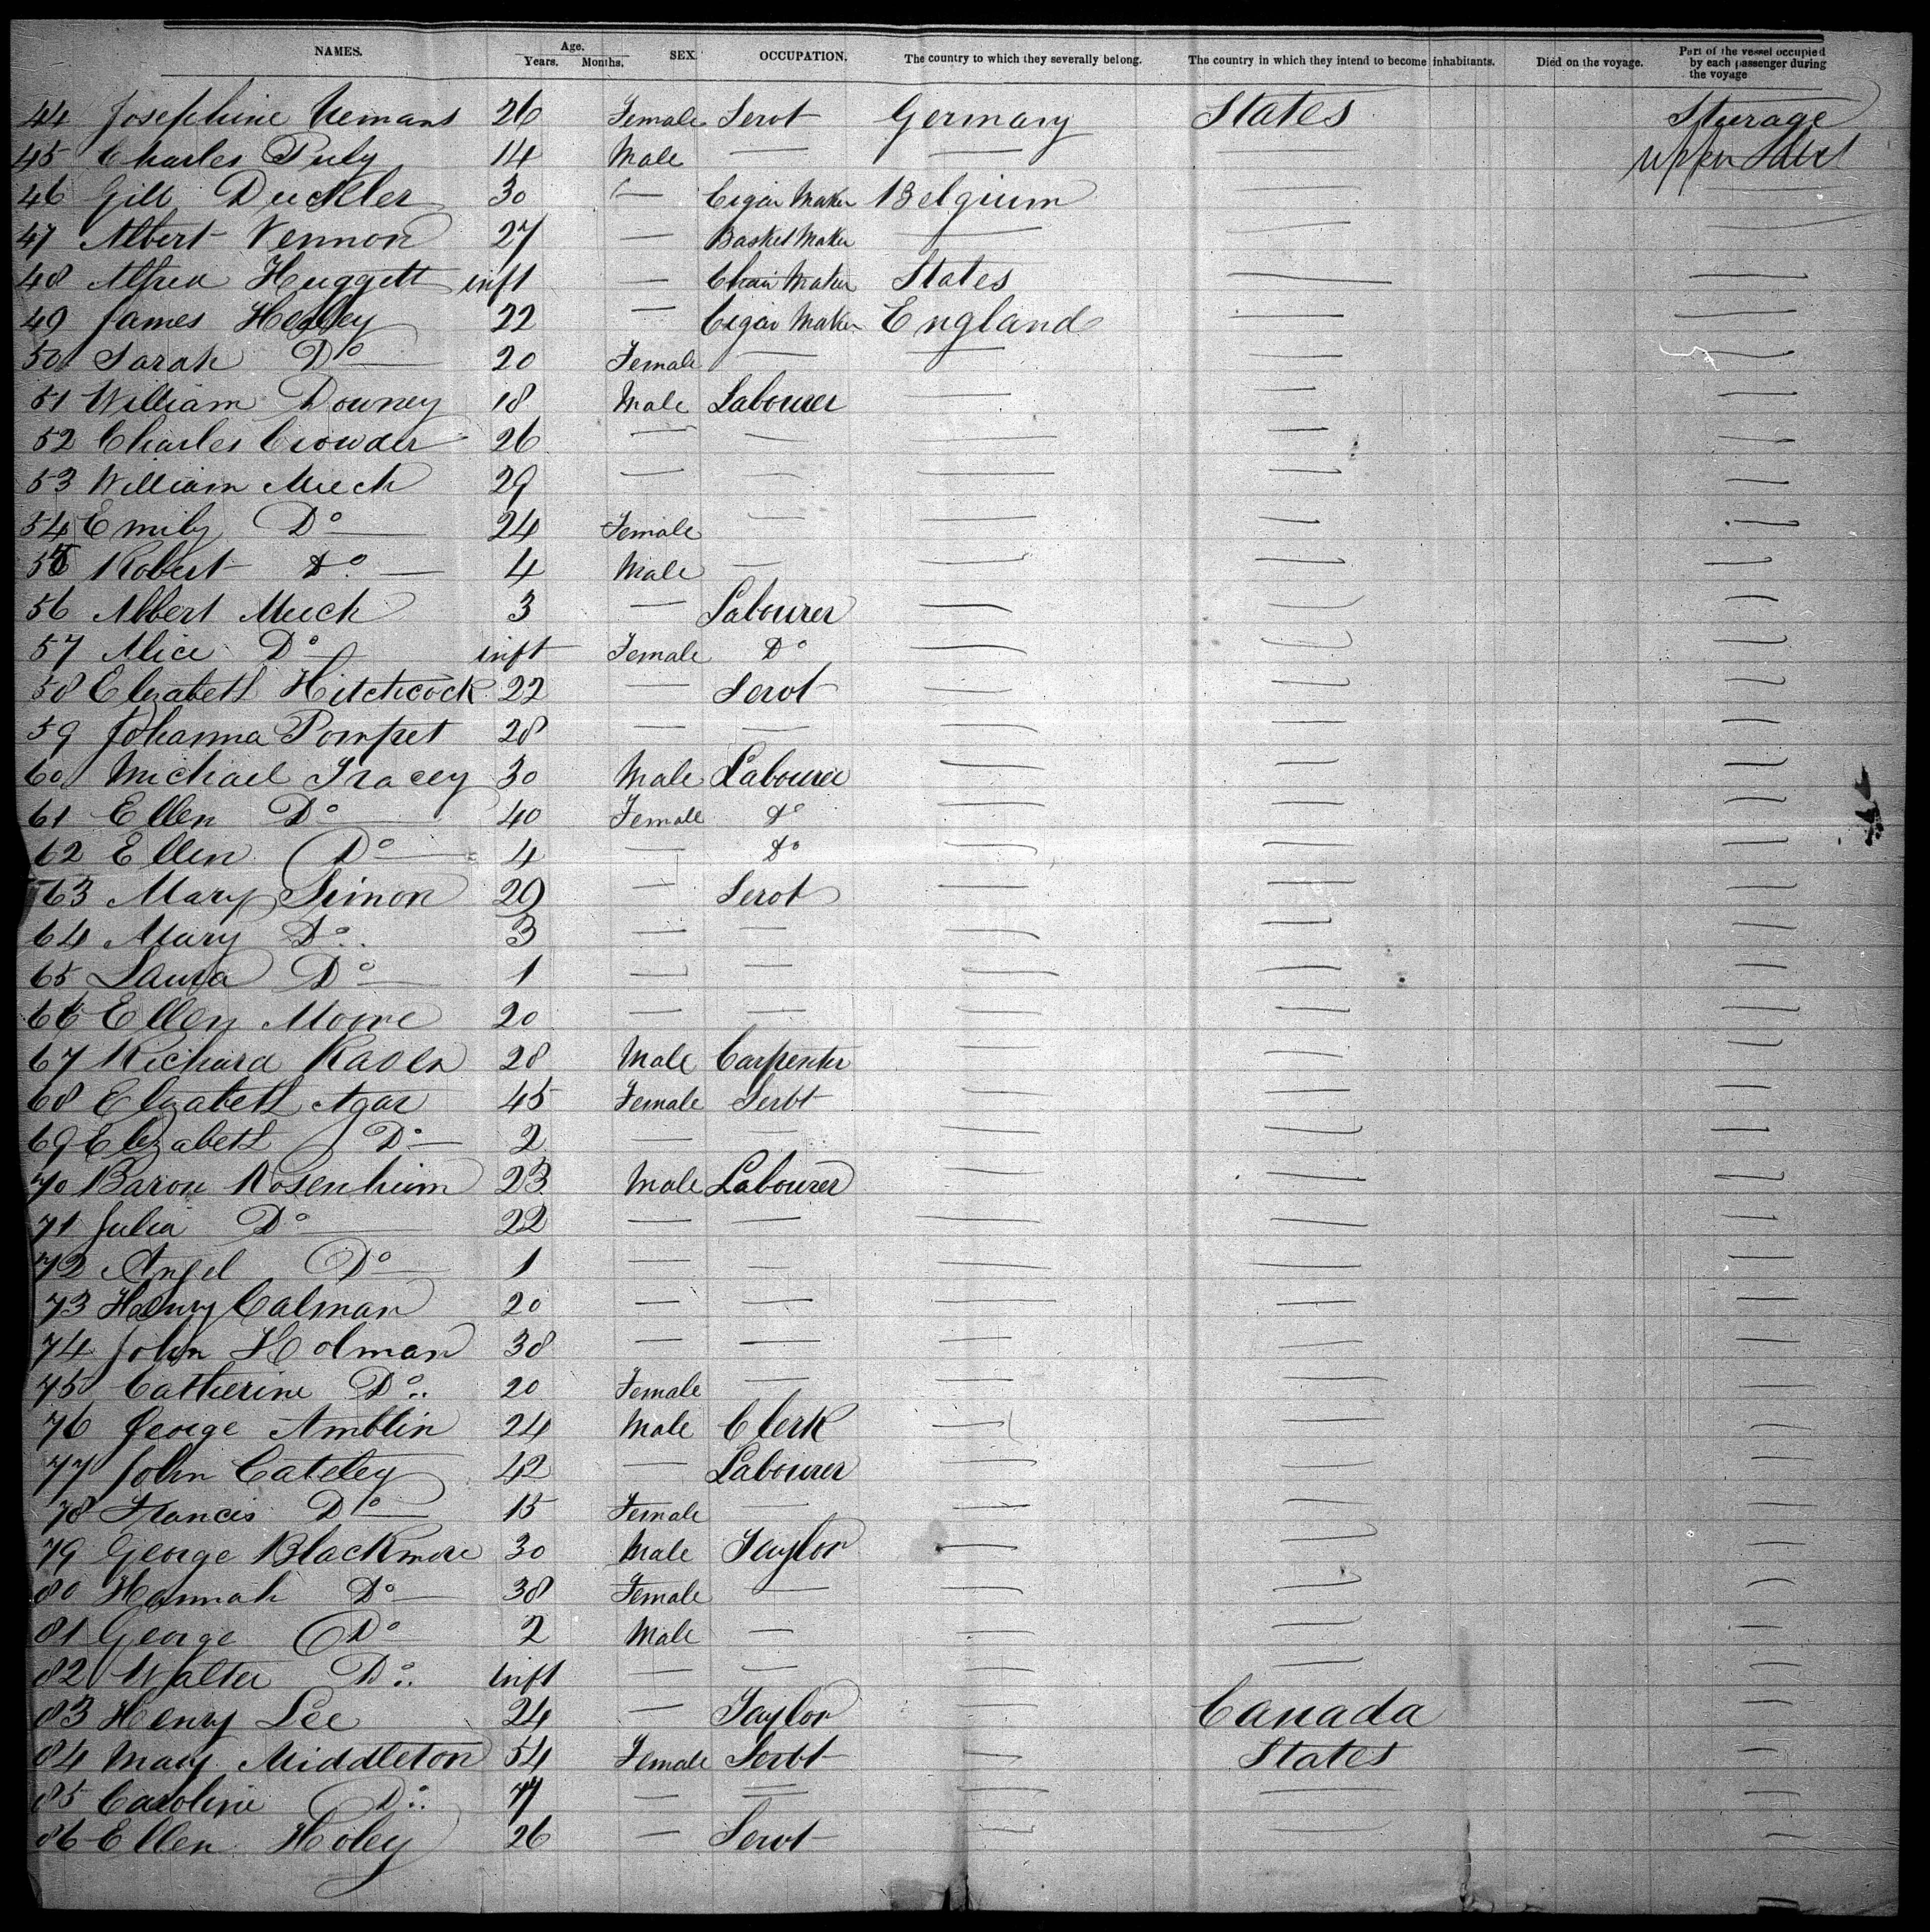 NAMES. Age. Years. Months. SEX. OCCUPATION. The country to which they severally belong. The country in which they intend to become inhabitants. Died on the voyage. Part of the vessel occupied by each passenger during the voyage
44 Josephine 26 Female Servt Germany States Sturage
45 Charles 14 Male — — — upper
46 Gill Duckler 30 — Cigar Maker Belgium — —
47 Albert Vennon 27 — Basket Maker — — —
48 Alfred Huggett inft — Chair Maker States — —
49 James Healey 22 — Cigar Maker England — —
50 Sarah Do — 20 Female — — — —
51 William Downey 18 Male Labourer — — —
52 Charles Crowder 26 — — — — —
53 William Meech 29 — — — — —
54 Emily Do — 24 Female — — — —
55 Robert Do — 4 Male — — — —
56 Albert Meech 3 — Labourer — — —
57 Alice Do — inft Female Do — — —
58 Elizabeth Hitchcock 22 — Servt — — —
59 Johanna Pompret 28 — — — — —
60 Michael Tracey 30 Male Labourer — — —
61 Ellen Do — 40 Female Do — — —
62 Ellen Do — 4 — Do — — —
63 Mary Simon 29 — Servt — — —
64 Mary Do 3 — — — — —
65 Laura Do — 1 — — — — —
66 Ellen Moore 20 — — — — —
67 Richard 28 Male Carpenter — — —
68 Elizabeth Agar 45 Female Servt — — —
69 Elizabeth Do — 2 — — — — —
70 Baron Rosenheim 23 Male Labourer — — —
71 Julia Do — 22 — — — — —
72 Angel Do — 1 — — — — —
73 Henry Calman 20 — — — — —
74 John Holman 38 — — — — —
75 Catherine Do 20 Female — — — —
76 George Amblin 24 Male Clerk — — —
77 John Cateley 42 — Labourer — — —
78 Francis Do — 15 Female — — — —
79 George Blackmore 30 Male Taylor — — —
80 Hannah Do — 38 Female — — — —
81 George Do — 2 Male — — — —
82 Walter Do inft — — — — —
83 Henry Lee 24 — Taylor — Canada —
84 Mary Middleton 54 Female Servt — States —
85 Caroline Do — — — — —
86 Ellen Holey 26 — Servt — — —